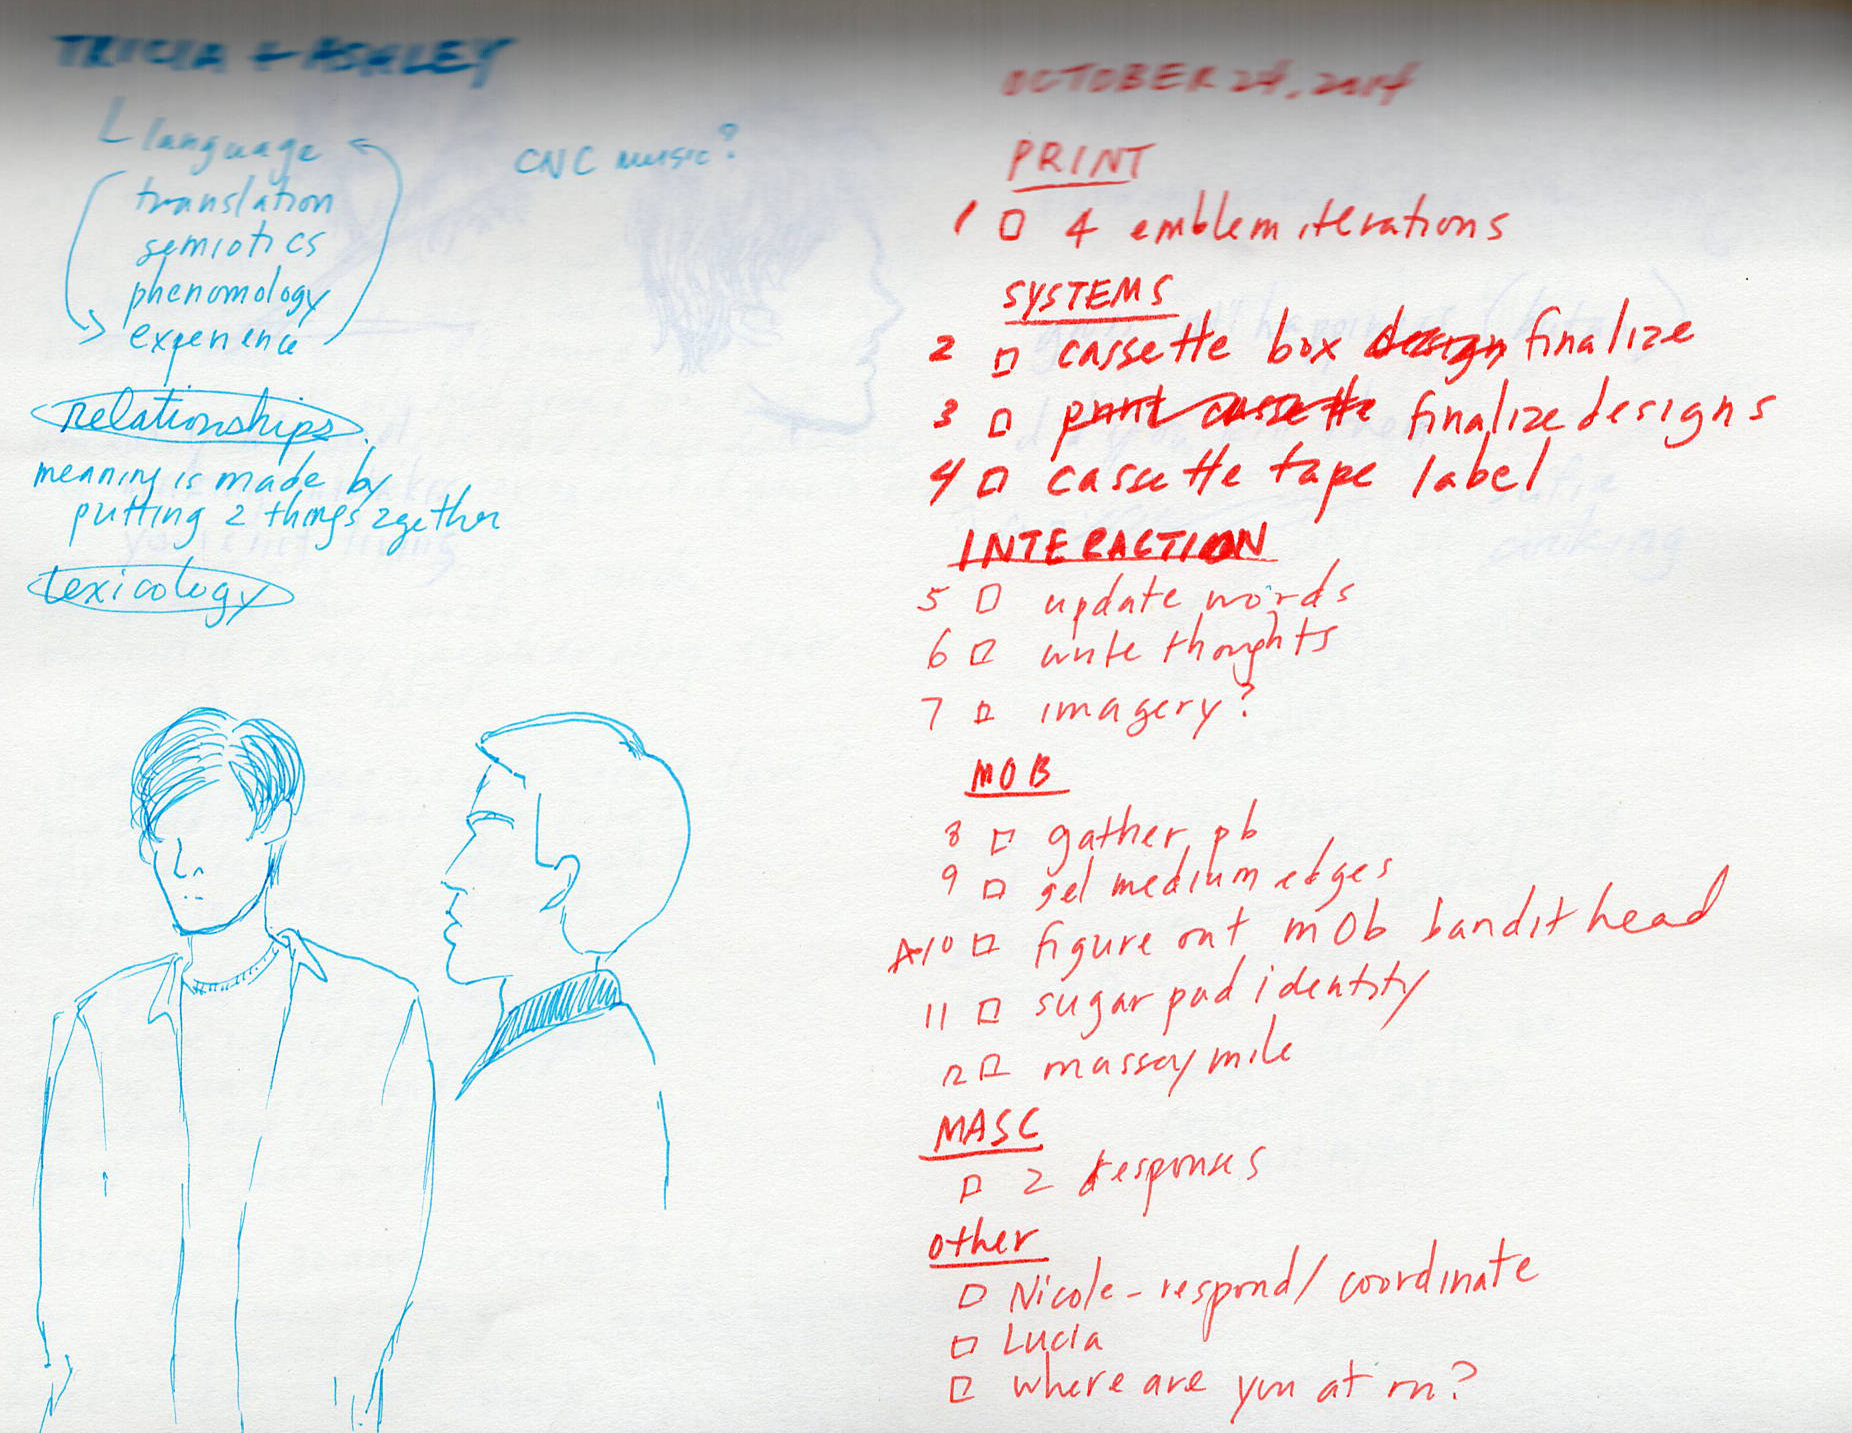 TRICIA + ASHLEY
L language
translation
semiotics
phenomology
experience
CNC music?
relationships.
meaning is made by
putting 2 things 2gether
lexicology
OCTOBER 24, 2014
PRINT
1 □ 4 emblem iterations
SYSTEMS
2 □ cassette box design finalize
3 □ print cassette finalize designs
4 □ cassette tape label
INTERACTION
5 □ update words
6 □ write thoughts
7 □ imagery?
MOB
8 □ gather pb
9 □ gel medium edges
A10 □ figure out mob bandit head
11 □ sugar pad identity
12 □ massay mile
MASC
□ 2 responses
other
□ Nicole - respond / coordinate
□ Lucia
□ where are you at rn?